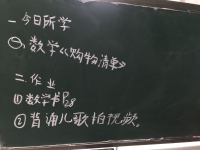 一.今日所学
㊀、数学《购物清单》
二.作业
⑴数学书P28
②背诵儿歌拍视频。